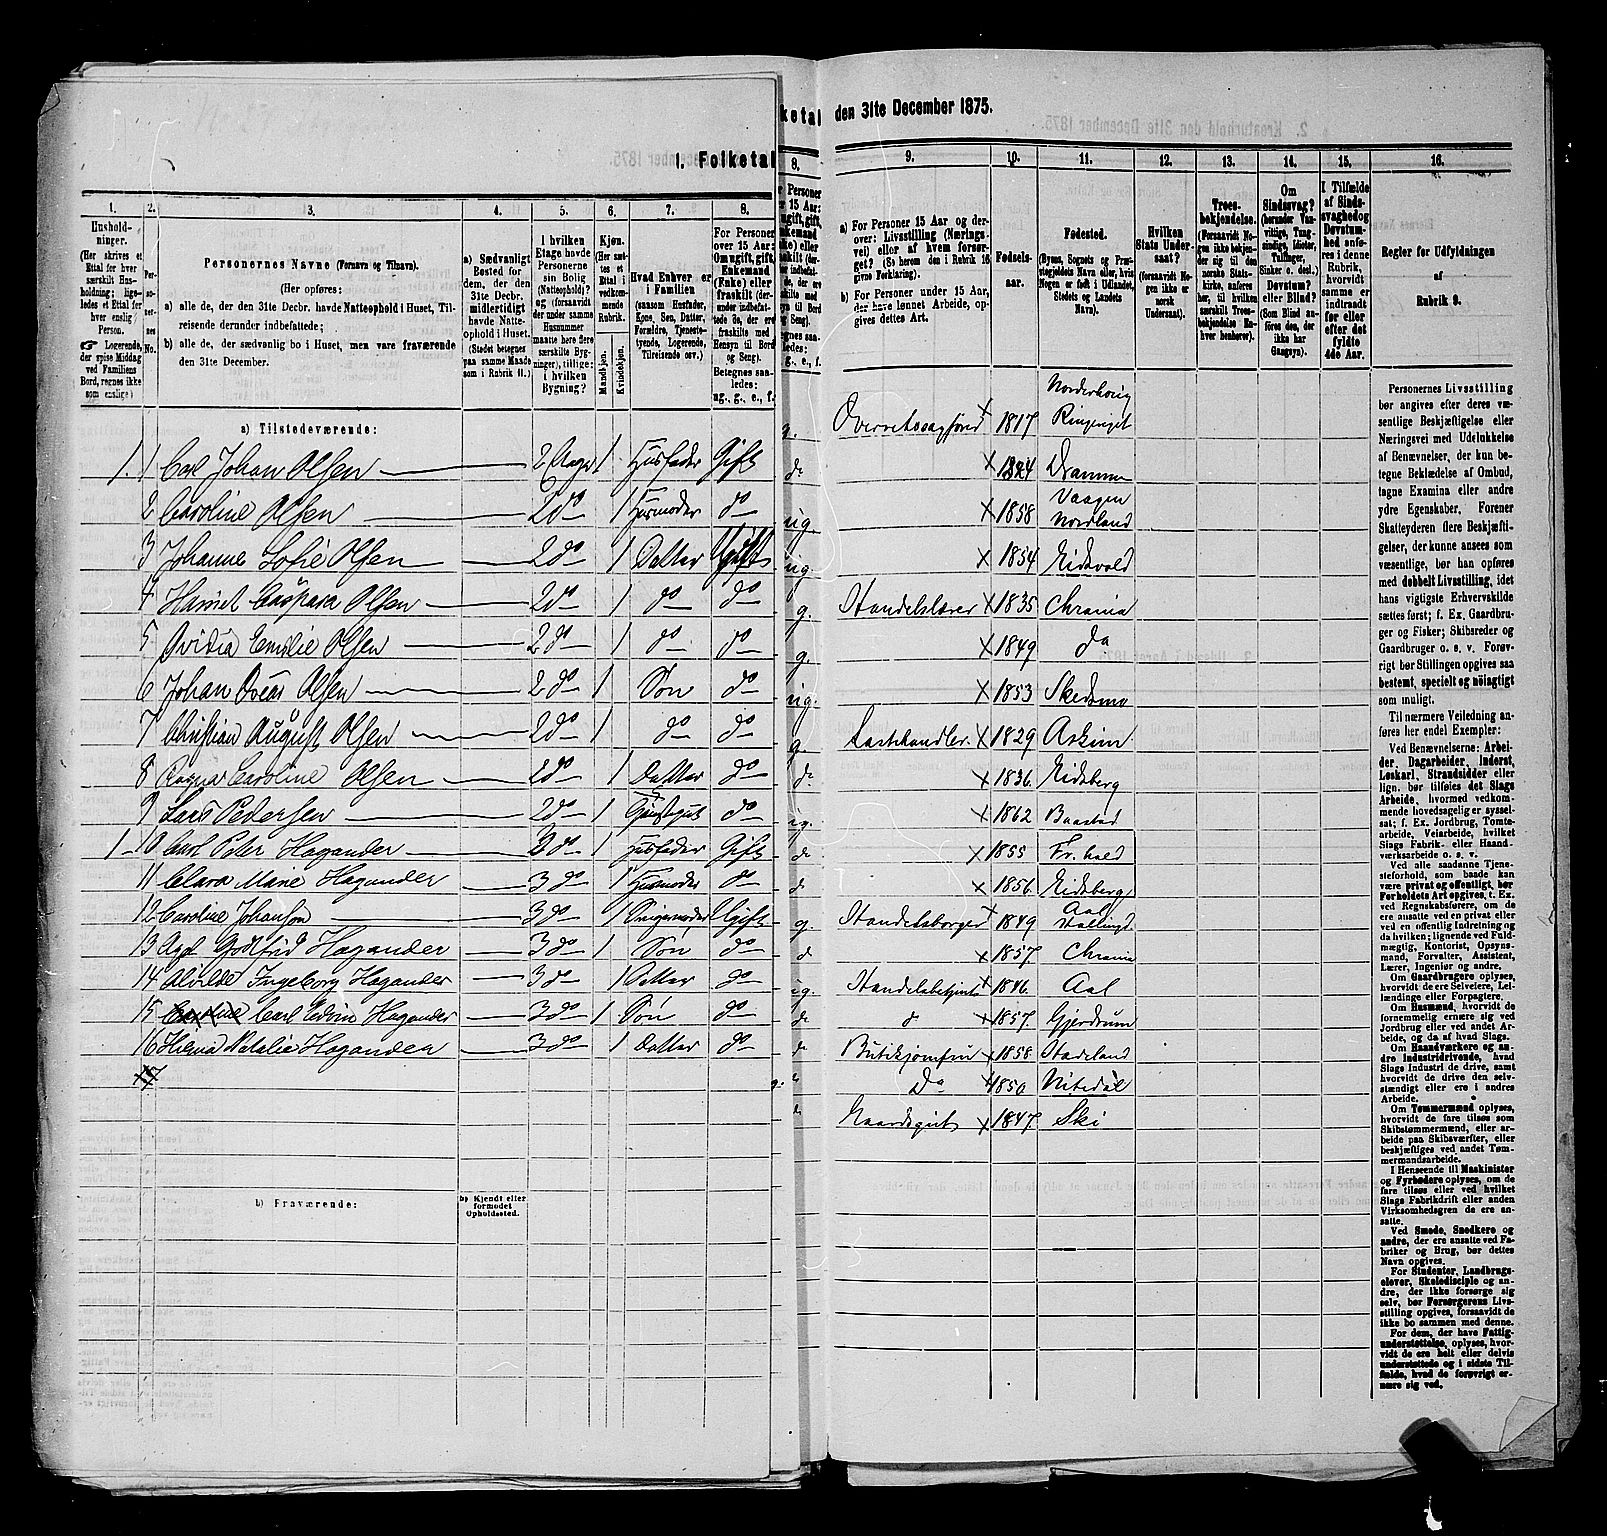 1. Folketal
ketal
den 31te December 1875.
1.
2.
3.
4.
5.
6.
7.
8.
Husholdninger.
(Her skrives et Ettal for hver særskilt Husholdning; ligeledes et Ettal for hver enslig Person.
Logerende, der spise Middag ved Familiens Bord, regnes ikke som enslige)
Personernes No.
Personernes Navne (Fornavn og Tilnavn).
(Her opføres:
a) alle, de der den 31te Decbr. havde Natteophold i Huset, Tilreisende derunder indbefattede;
b) alle, de, der sædvanlig bo i Huset, men vare fraværende den 31te December.
a) Sædvanligt Bosted for dem, der den 31te Decbr. midlertidigt havde Natteophold i Huset.
(Stedet betegnes paa samme Maade som i Rubrik 11.)
I hvilken Etage havde Personerne sin Bolig (Natteophold)? (og forsaavidt der under samme Husnummer maatte høre flere særskilte Bygninger), tillige: i hvilken Bygning?
Kjøn.
(Her sættes et Ettal i vedkommende Rubrik.
Mandkjøn.
Kvindekjøn.
Hvad Enhver er i Familien
(saasom Husfader, Kone, Søn, Datter, Forældre, Tjenestetyende, Logerende, Tilreisende osv.)
For Personer over 15 Aar: Om ugift, gift, Enkemand (Enke) eller fraskilt (derunder indbefattede, de, der ere fraskilte med Hensyn til Bord og Seng).
Betegnes saaledes:
ug., g., e., f.
a) Tilstedeværende:
1. 1 Carl Johan Olsen 2 Etage 1 Husfader Gift
2 Caroline Olsen 2 do 1 Husmoder do
3 Johanne Sofie Olsen 2 do 1 Datter Ugift
4 Harriet Caspara Olsen 2 do 1 do do
5 Ovidia Emilie Olsen 2 do 1 do do
6 Johan Oscar Olsen 2 do 1 Søn do
7 Christian August Olsen 2 do 1 do do
8 Ragna Caroline Olsen 2 do 1 Datter do
9 Lars Pedersen 2 do 1 do
1 10 Carl Peter Hagander 3 do 1 Husfader Gift
11 Clara Marie Hagander 3 do 1 Husmoder do
12 Caroline Johanson 3 do 1 Svigermoder Ugift
13 Axel Godtfrid Hagander 3 do 1 Søn do
14 Alvilde Ingeborg Hagander 3 do 1 Datter do
15 Caroline Carl Edvin Hagander 3 do 1 Søn do
16 Natalie Hagander 3 do 1 Datter do
17
b) Fraværende:
b) Kjendt eller formodet Opholdssted.
8.
9.
10.
11.
12.
13.
14.
15.
16.
a) For Personer 15 Aar og derover: Livsstilling (Næringsvei) eller af hvem forsørget? (Se herom den i Rubrik 16 givne Forklaring).
b) For Personer under 15 Aar, der have lønnet Arbeide, opgives dettes Art.
Fødselsaar.
Fødested.
(Byens, Sognets og Præstegjeldets Navn eller, hvis Nogen er født i Udlandet, Stedets og Landets Navn).
Hvilken Stats Undersaat?
(forsaavidt Nogen ikke er norsk Undersaat).
Troesbekjendelse.
(Forsaavidt Nogen ikke bekjender sig til den norske Statskirke, anføres her, til hvilken særskilt Troesbekjendelse Han henhører).
Om Sindssvag? (herunder Vanvittige, Tungsindige, Idioter, Taabinger, Sinker o. desl.)
Døvstum? eller Blind?
(Som Blind anføres den, der ikke har Gangsyn).
I Tilfælde af Sindssvaghed og Døvstumhed anføres i denne Rubrik, hvorvidt samme er indtraadt før eller efter det fyldte 4de Aar.
Regler for Udfyldningen af Rubrik 9.
g. Overretssagfører 1817 Norderhoug Ringeriget
do 1824 Drammen
ug. 1858 Vaagen Nordland
ug. 1854 Eidsvold
g. Handelslærer 1835 Chrania
g. 1849 do
ug. 1853 Skedsmo
g. 1829 Askim
do 1836 Eidsberg
ug. 1862 Baastad
do 1855 Fr.hald
do 1856 Eidsberg
g. Handelsborger 1849 Aal Hallingd.
do 1857 Chrania
ug. Handelsbetjent 1846 Aal
do do 1857 Gjerdrum
do Butikjomfru 1858 Hadeland
do Do 1850 Nitedal
do Gaardsgut 1847 Ski
Personernes Livsstilling bør angives efter deres væsentlige Beskjæftigelse eller Næringsvei med Udelukkelse af Benævnelser, der kun betegne Beklædelse af Ombud, tagne Examina eller andre ydre Egenskaber. Forener Skatteyderen flere Beskjæftigelser, der kunne ansees som væsentlige, bør han opføres med dobbelt Livsstilling, idet hans vigtigste Erhvervskilde sættes først; f. Ex. Gaardbruger og Fisker; Skibsreder og Gaardbruger o. s. v. Forøvrigt bør Stillingen opgives saa bestemt, specielt og nøiagtigt som muligt.
Til nærmere Veiledning anføres her endel Exempler:
Ved Benævnelserne: Arbeider, Dagarbeider, Inderst, Løskarl, Strandsidder eller lign. bør tilføies det Slags Arbeide, hvormed vedkommende hovedsagelig er sysselsat; f. Ex. Jordbrug, Tomtearbeide, Veiarbeide, hvilket Slags Fabrik- eller Haandværksarbeide o. s. v.
Ved alle saadanne Tjenesteforhold, som baade kan være privat og offentligt, bør Forholdets Art opgives, t. Ex. ved Regnskabsførere, om de ere ansatte ved en privat eller ved en offentlig Indretning og da hvilken; lignende ved Fuldmægtig, Kontorist, Opsynsmand, Forvalter, Assistent, Lærer, Ingeniør og andre.
Om Gaardbrugere oplyses, hvorvidt de ere Selveiere, Leilændinge eller Forpagtere.
Om Husmænd, hvorvidt de fornemmelig ernære sig ved Jordbrug eller ved andet Arbeide, og da af hvad Slags.
Om Haandværkere og andre Industridrivende, hvad Slags Industri de drive, samt hvorvidt de drive den selvstændigt eller ere i andres Arbeide.
Om Tømmermænd oplyses, hvorvidt de fare tilsøs som Skibstømmermænd, eller arbeide paa Skibsværfter, eller beskjæftiges ved andet Tømmermandsarbeide.
I Henseende til Maskinister og Fyrbødere oplyses, om de fare tilsøs eller ved hvilket Slags Fabrikdrift eller anden Virksomhedsgren de ere ansatte.
Ved Smede, Snedkere og andre, der ere ansatte ved Fabriker og Brug, bør dettes Navn opgives.
For Studenter, Landbrugselever, Skoledisciple og andre, der ikke forsørge sig selv, bør Forsørgerens Livsstilling opgives, forsaavidt de ikke bo sammen med denne.
For dem, der have Fattigunderstøttelse, oplyses, hvorvidt de ere helt eller delvis understøttede og i sidste Tilfælde, hvad de forøvrigt ernære sig ved.